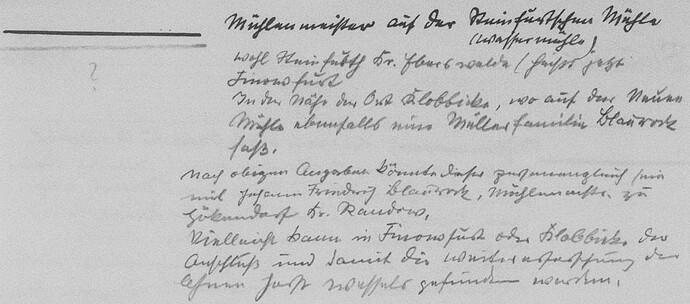 Mühlenmeister auf der Steinfurtschen Mühle
(Wassermühle)
wohl Steinfurth Kr. Eberswalde (heißt jetzt
Finowfurt
In der Nähe der Ort Klobbicke, wo auf der Neuen
Mühle ebenfalls eine Müllerfamilie Blaurock
saß.
?
Nach obigen Angaben könnte dieser personengleich sein
mit Johann Friedrich Blaurock, Mühlenmstr. zu
Hökendorf Kr. Randow.
Vielleicht kann in Finowfurt oder Klobbicke der
Anschluß und damit die Weitererforschung der
Ahnen Horst Wessels gefunden werden.